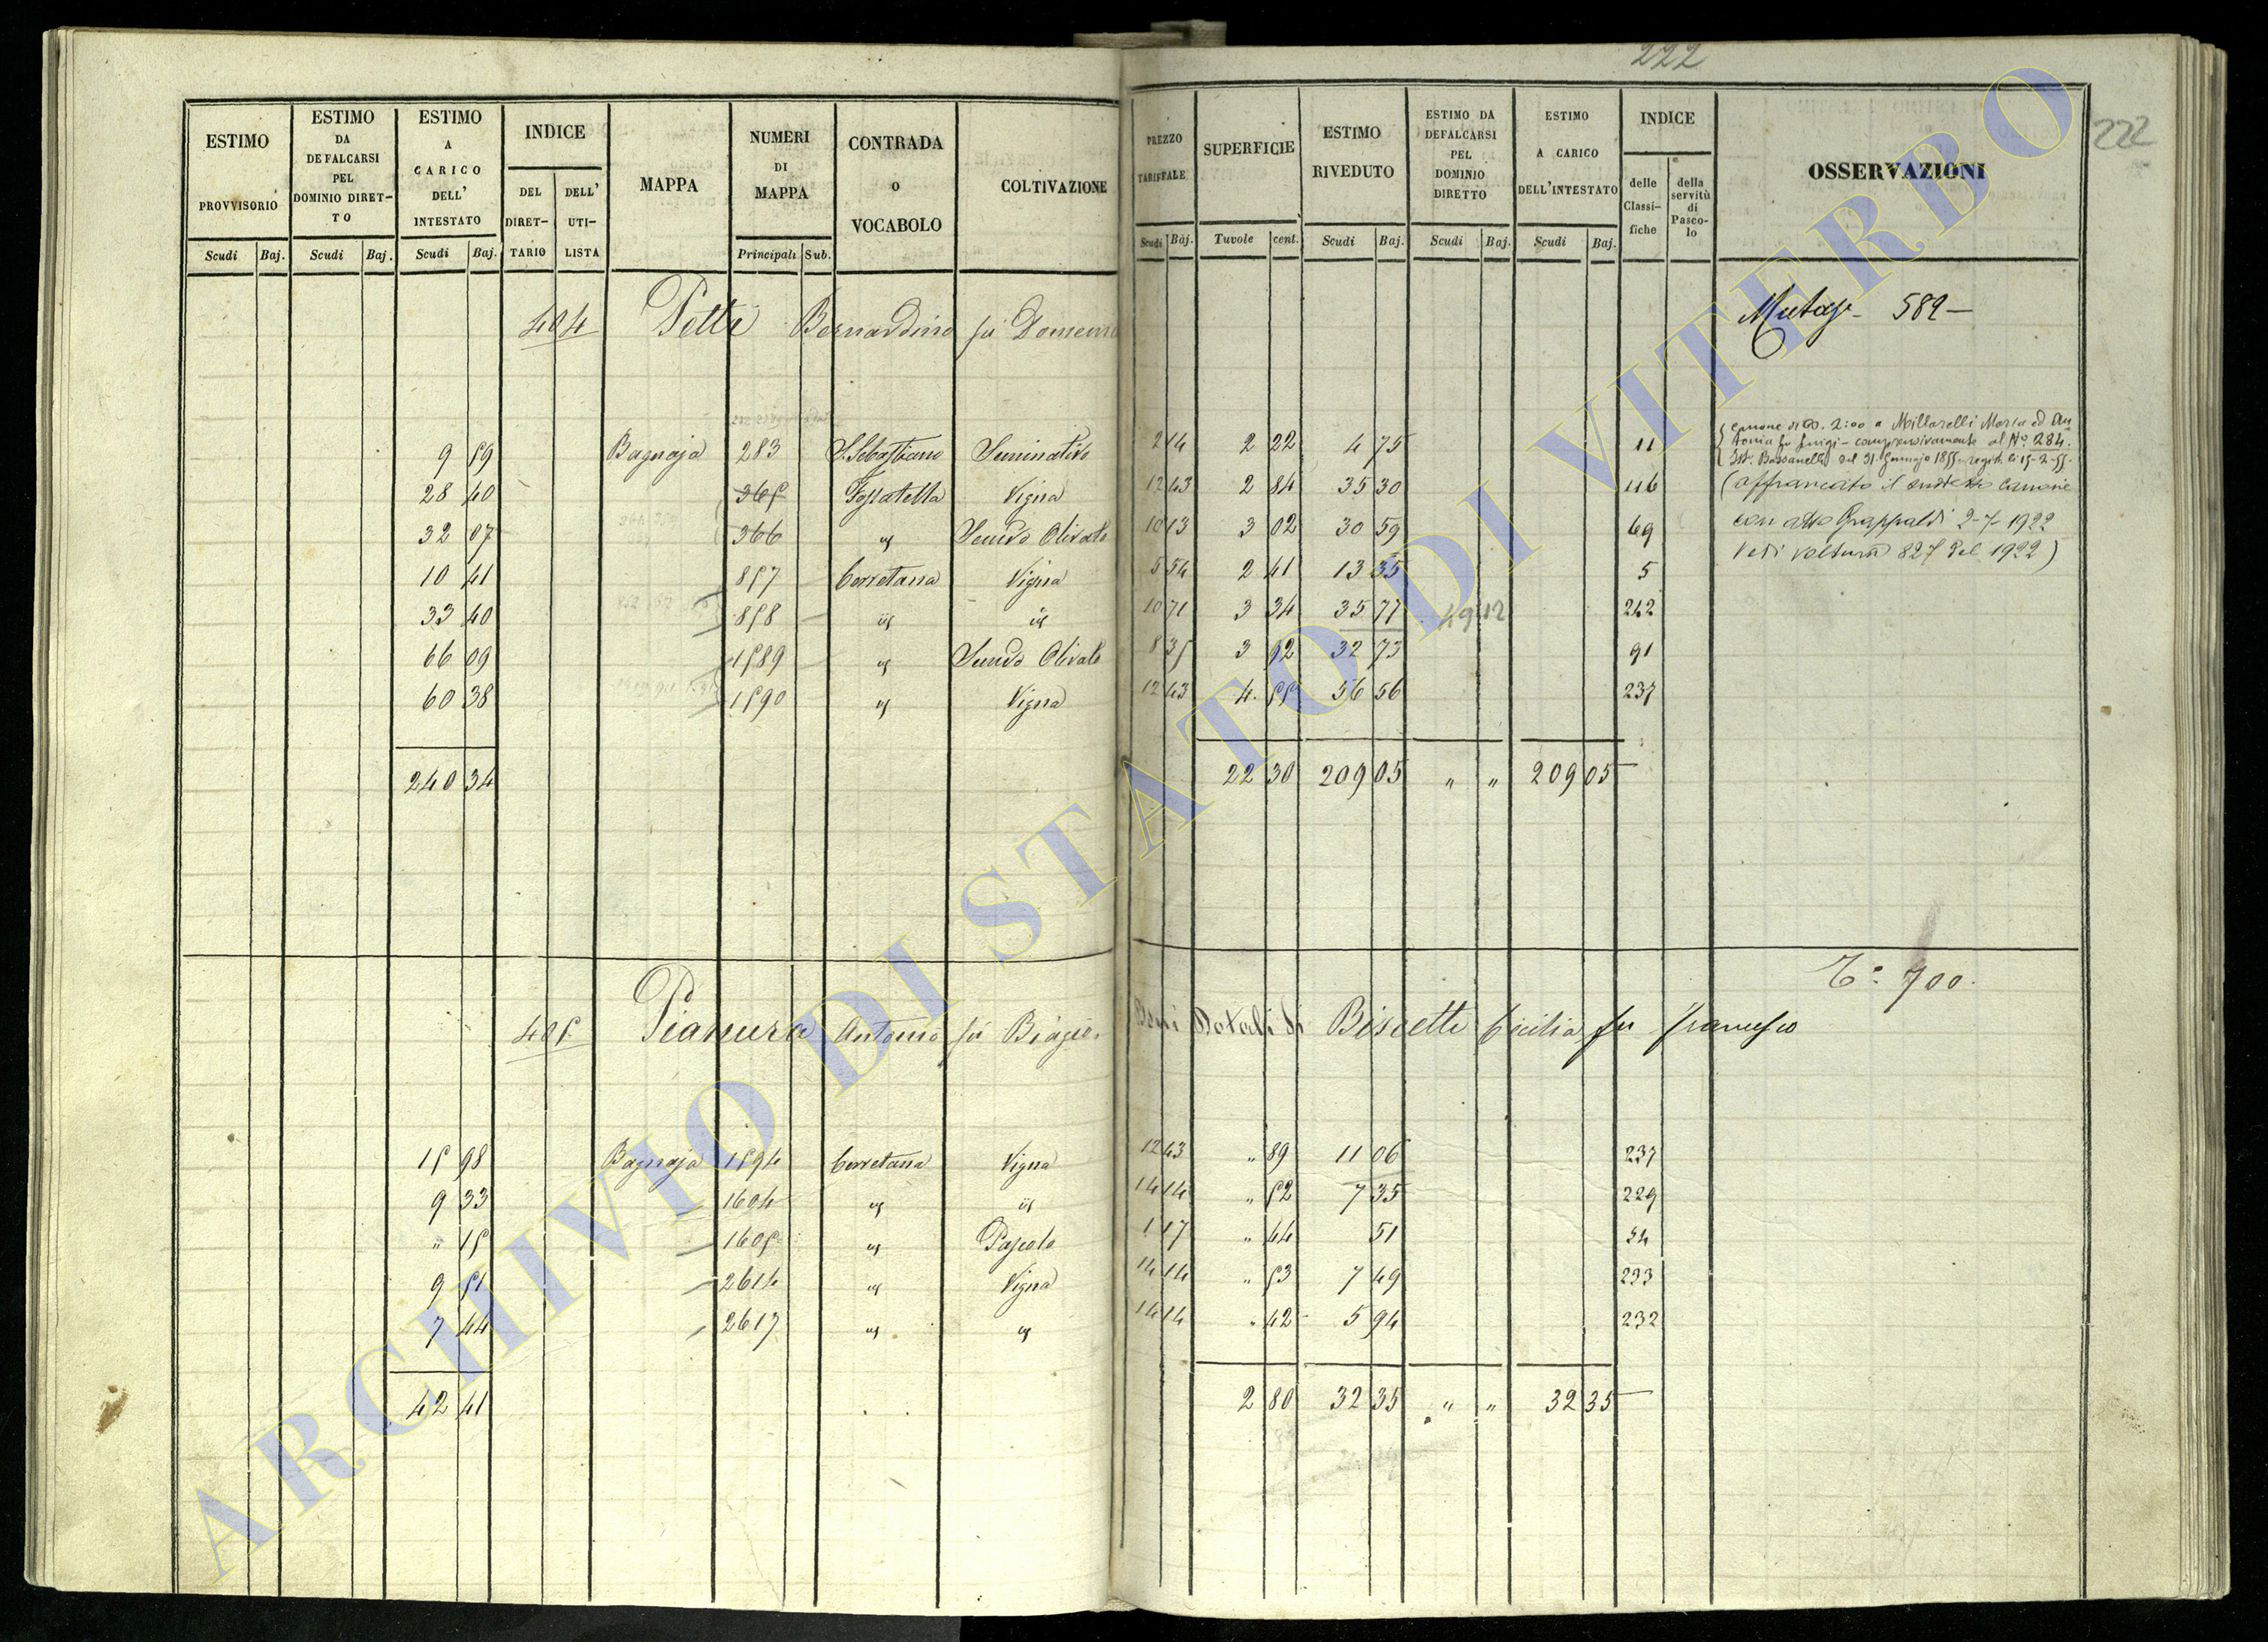 222
222
ESTIMO PROVVISORIO
Scudi Baj.
ESTIMO DA DEFALCARSI PEL DOMINIO DIRET-TO
Scudi Baj.
ESTIMO A CARICO DELL' INTESTATO
Scudi Baj.
INDICE
DEL DIRET-TARIO
DELL' UTI-LISTA
MAPPA
NUMERI DI MAPPA
Principali Sub.
CONTRADA O VOCABOLO
COLTIVAZIONE
PREZZO TARIFFALE
Scudi Baj.
SUPERFICIE
Tavole cent.
ESTIMO RIVEDUTO
Scudi Baj.
ESTIMO DA DEFALCARSI PEL DOMINIO DIRETTO
Scudi Baj.
ESTIMO A CARICO DELL'INTESTATO
Scudi Baj.
INDICE
delle Classi-fiche
della servitù di Pasco-lo
OSSERVAZIONI
404 Petti Bernardino fu Domenico
Mutaz. 589
9 59 Bagnaja 283 S. Sebastiano Seminativo 2 14 2 22 4 75 11
28 40 365 Fossatella Vigna 12 43 2 84 35 30 116
32 07 366 id Semvo Olivato 10 13 3 02 30 59 69
10 41 857 Cerretana Vigna 5 54 2 41 13 35 5
33 40 858 id id 10 71 3 34 35 77 49 12 242
66 09 1589 id Semvo Olivato 8 35 3 92 32 73 91
60 38 1590 id Vigna 12 43 4 55 56 56 237
240 34 22 30 209 05 " " 209 05
Canone di 2:00 a Millarelli Maria ed An
tonia fu Luigi - comprensivamente al N° 284.
Ist. Bussanelli del 31 Gennajo 1855 regist. li 15-2-55.
(affrancato il suddetto Canone
con atto Grappaldi 2-7-1922
Vedi voltura 827 del 1922)
405 Pianura Antonio fu Biagio. Beni Dotali di Biscetti Cecilia fu Francesco
T: 700.
15 98 Bagnaja 1594 Cerretana Vigna 12 43 " 89 11 06 237
9 33 1604 id id 14 14 " 52 7 35 229
" 15 1605 id Pascolo 1 17 " 44 51 34
9 51 2614 id Vigna 14 14 " 53 7 49 233
7 44 2617 id id 14 14 " 42 5 94 232
42 41 2 80 32 35 " " 32 35
ARCHIVIO DI STATO DI VITERBO